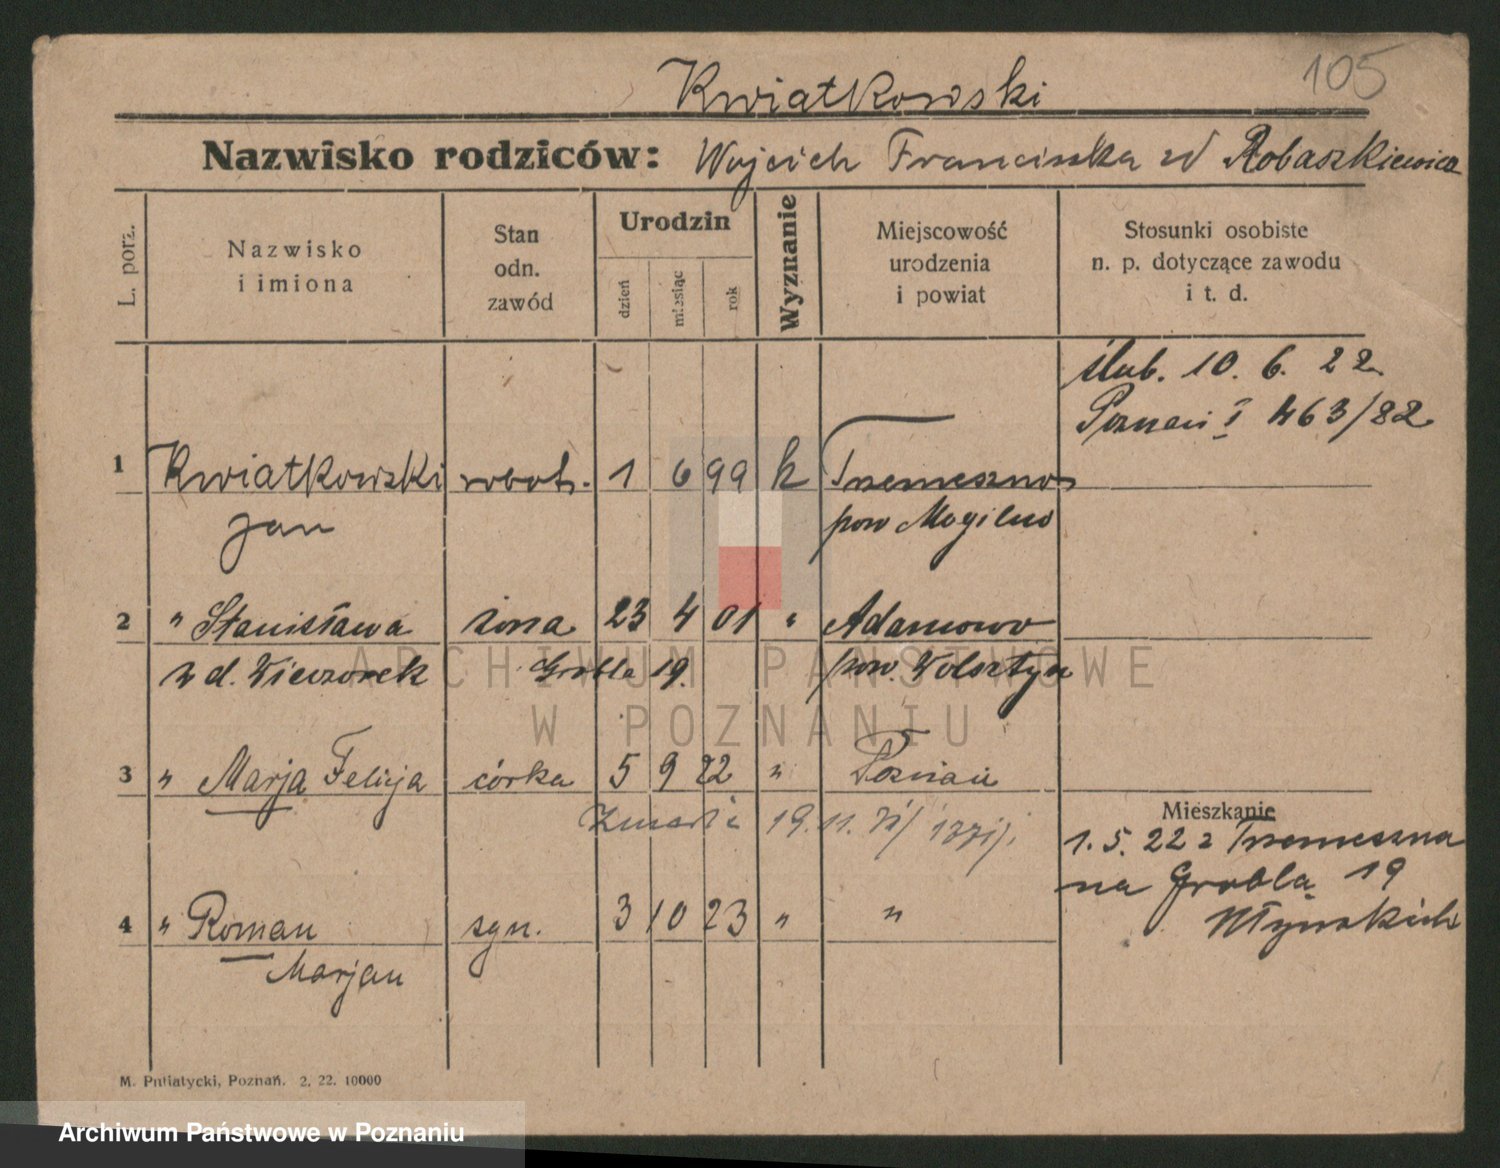 105
Kwiatkowski
Nazwisko rodziców: Wojciech Franciszka zd Robaszkiewicz
L. porz.
Nazwisko
i imiona
Stan
odn.
zawód
Urodzin
dzień
miesiąc
rok
Wyznanie
Miejscowość
urodzenia
i powiat
Stosunki osobiste
n. p. dotyczące zawodu
i t. d.
ślub. 10. 6. 22
Poznań I 463/22
1 Kwiatkowski robotn. 1 6 99 k Trzemeszno
Jan pow Mogilno
2 " Stanisława żona 23 4 01 " Adamowo
z d. Wieczorek Grobla 19. pow. Wolsztyn
3 " Marja Felicja córka 5 9 22 " Poznań
Zmarła 19. 11.
Mieszkanie
1. 5. 22 z Trzemeszna
na Grobla 19
4 " Roman syn. 3 10 23 " "
Marjan
M. Putiatycki, Poznań. 2. 22. 10000
ARCHIWUM PAŃSTWOWE
W POZNANIU
Archiwum Państwowe w Poznaniu